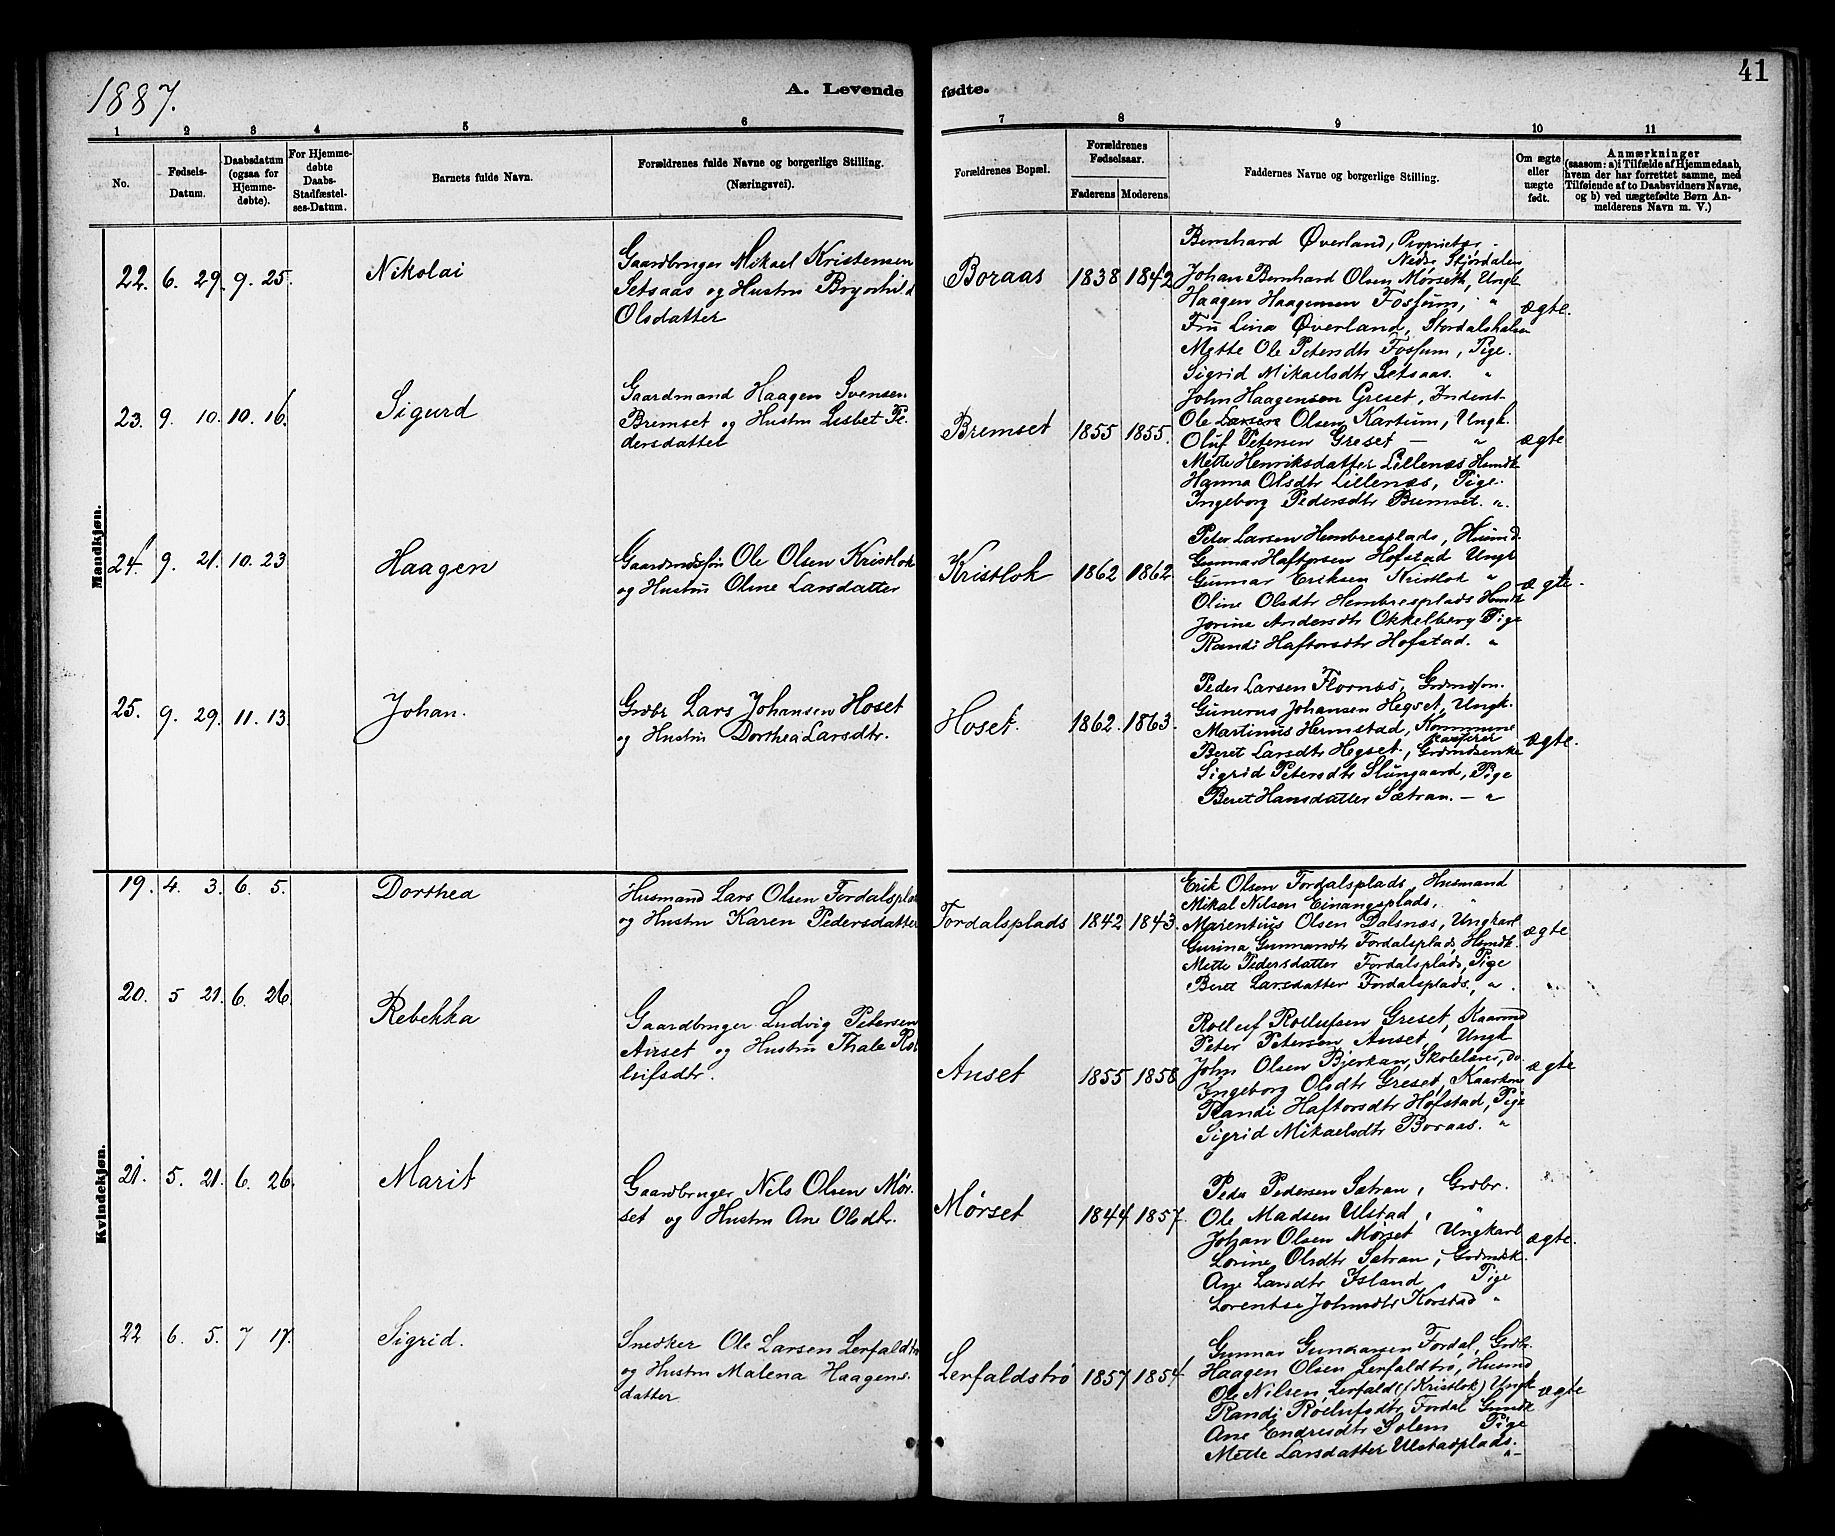 1887.
A. Levende fødte.
41
1 2 3 4 5 6 7 8 9 10 11
No.
Fødsels-Datum.
Daabsdatum (ogsaa for Hjemmedøbte).
For Hjemmedøbte Daabs-Stadfæstelses-Datum.
Barnets fulde Navn.
Forældrenes fulde Navne og borgerlige Stilling. (Næringsvei).
Forældrenes Bopæl.
Forældrenes Fødselsaar.
Faderens Moderens
Faddernes Navne og borgerlige Stilling.
Om ægte eller uægte født.
Anmærkninger
(saasom: a) i Tilfælde af Hjemmedaab, hvem der har forrettet samme, med Tilføiende af to Daabsvidners Navne, og b) ved uægtefødte Børn Anmelderens Navn m. V.)
Mandkjøn.
22. 6. 29. 9. 25. Nikolai
Gaardbruger Mikael Kristensen
Setsaas og Hustru Brynhild
Olsdatter
Boraas 1838 1842
Bernhard Øverland, Proprietær
Nedre Stjørdalen
Johan Bernhard Olsen Mørseth, Ungk
Haagen Haagensen Fossum, "
Fru Lina Øverland, Stordalshalsen
Mette Ole Petersdtr Fossum, Pige.
Sigrid Mikaelsdtr Setsaas. "
ægte.
23. 9. 10. 10. 16. Sigurd
Gaardmand Haagen Svensen
Bremset og Hustru Lisbet Pe
dersdatter
Bremset 1855 1855.
John Haagensen Greset, Inderst
Ole Larsen Olsen Kartum, Ungk.
Oluf Petersen Greset — "
Mette Henriksdatter Lillenæs Husmdk
Hanna Olsdtr Lillenæs, Pige.
Ingeborg Pedersdtr Bremset. "
ægte
24. 9. 21. 10. 23 Haagen
Gaardmdsøn Ole Olsen Kristlok
og Hustru Oline Larsdatter
Kristlok 1862 1862.
Peter Larsen Hembresplads, Husmd.
Gunnar Haftorsen Hofstad Ungk
Gunnar Eriksen Kristlok "
Oline Olsdtr Hembresplads Husmdk
Jorine Andersdtr Okkelberg Pige
Randi Haftorsdtr Hofstad. "
ægte.
25. 9. 29. 11. 13. Johan.
Grdbr Lars Johansen Hoset
og Hustru Dorthea Larsdtr.
Hoset 1862. 1863.
Peder Larsen Flornæs, Grdmdsøn.
Gunerus Johansen Hegset, Ungk.
Martinus Hermstad, Kommune
kasserer
Beret Larsdtr Hegset, Grdmdsenke
Sigrid Petersdtr Slungaard, Pige
Beret Hansdatter Sætran. — "
ægte.
Kvindekjøn.
19. 4. 3. 6. 5. Dorthea
Husmand Lars Olsen Fordalsplas
og Hustru Karen Pedersdatter
Fordalsplads 1842 1843.
Erik Olsen Fordalsplads, Husmand
Mikal Nilsen Einangsplads, "
Marentius Olsen Dalsnæs, Ungkarl
Gurina Gunnarsdtr Fordalsplads, Husmdk.
Mette Pedersdatter Fordalsplads, Pige
Beret Larsdatter Fordalsplads, "
ægte
20. 5 21. 6. 26. Rebekka
Gaardbruger Ludvig Petersen
Anset og Hustru Thale Rol
leifsdtr.
Anset 1855 1858
Rolluf Rollufsen Greset, Kaarmd
Peter Petersen Anset, Ungk
John Olsen Bjerkan, Skolelærer, do.
Ingeborg Olsdtr Greset, Kaarkone
Randi Haftorsdtr Hofstad, Pige
Sigrid Mikaelsdtr Boraas. "
ægte
21. 5. 21. 6. 26. Marit
Gaardbruger Nils Olsen Mør-
set og Hustru Ane Olsdtr.
Mørset 1844 1857.
Peder Pedersen Sætran, Grdbr.
Ole Madsen Ulstad, "
Johan Olsen Mørset Ungkarl
Lorine Olsdtr Sætran, Grdmdsk.
Ane Larsdtr Island, Pige
Lorentse Johnsdtr Korstad "
ægte.
22 6. 5. 7 17. Sigrid.
Snedker Ole Larsen Lerfaldtrø
og Hustru Malena Haagens-
datter
Lerfaldstrø 1857 1854
Gunnar Gunnarsen Fordal, Grdbr.
Haagen Olsen Lerfaldtrø, Husmd
Ole Nilsen, Lerfald (Kristlok) Ungk
Randi Rollufsdtr, Fordal Grmdk
Ane Endresdtr Solem Pige
Mette Larsdatter Ulstadplads. "
ægte